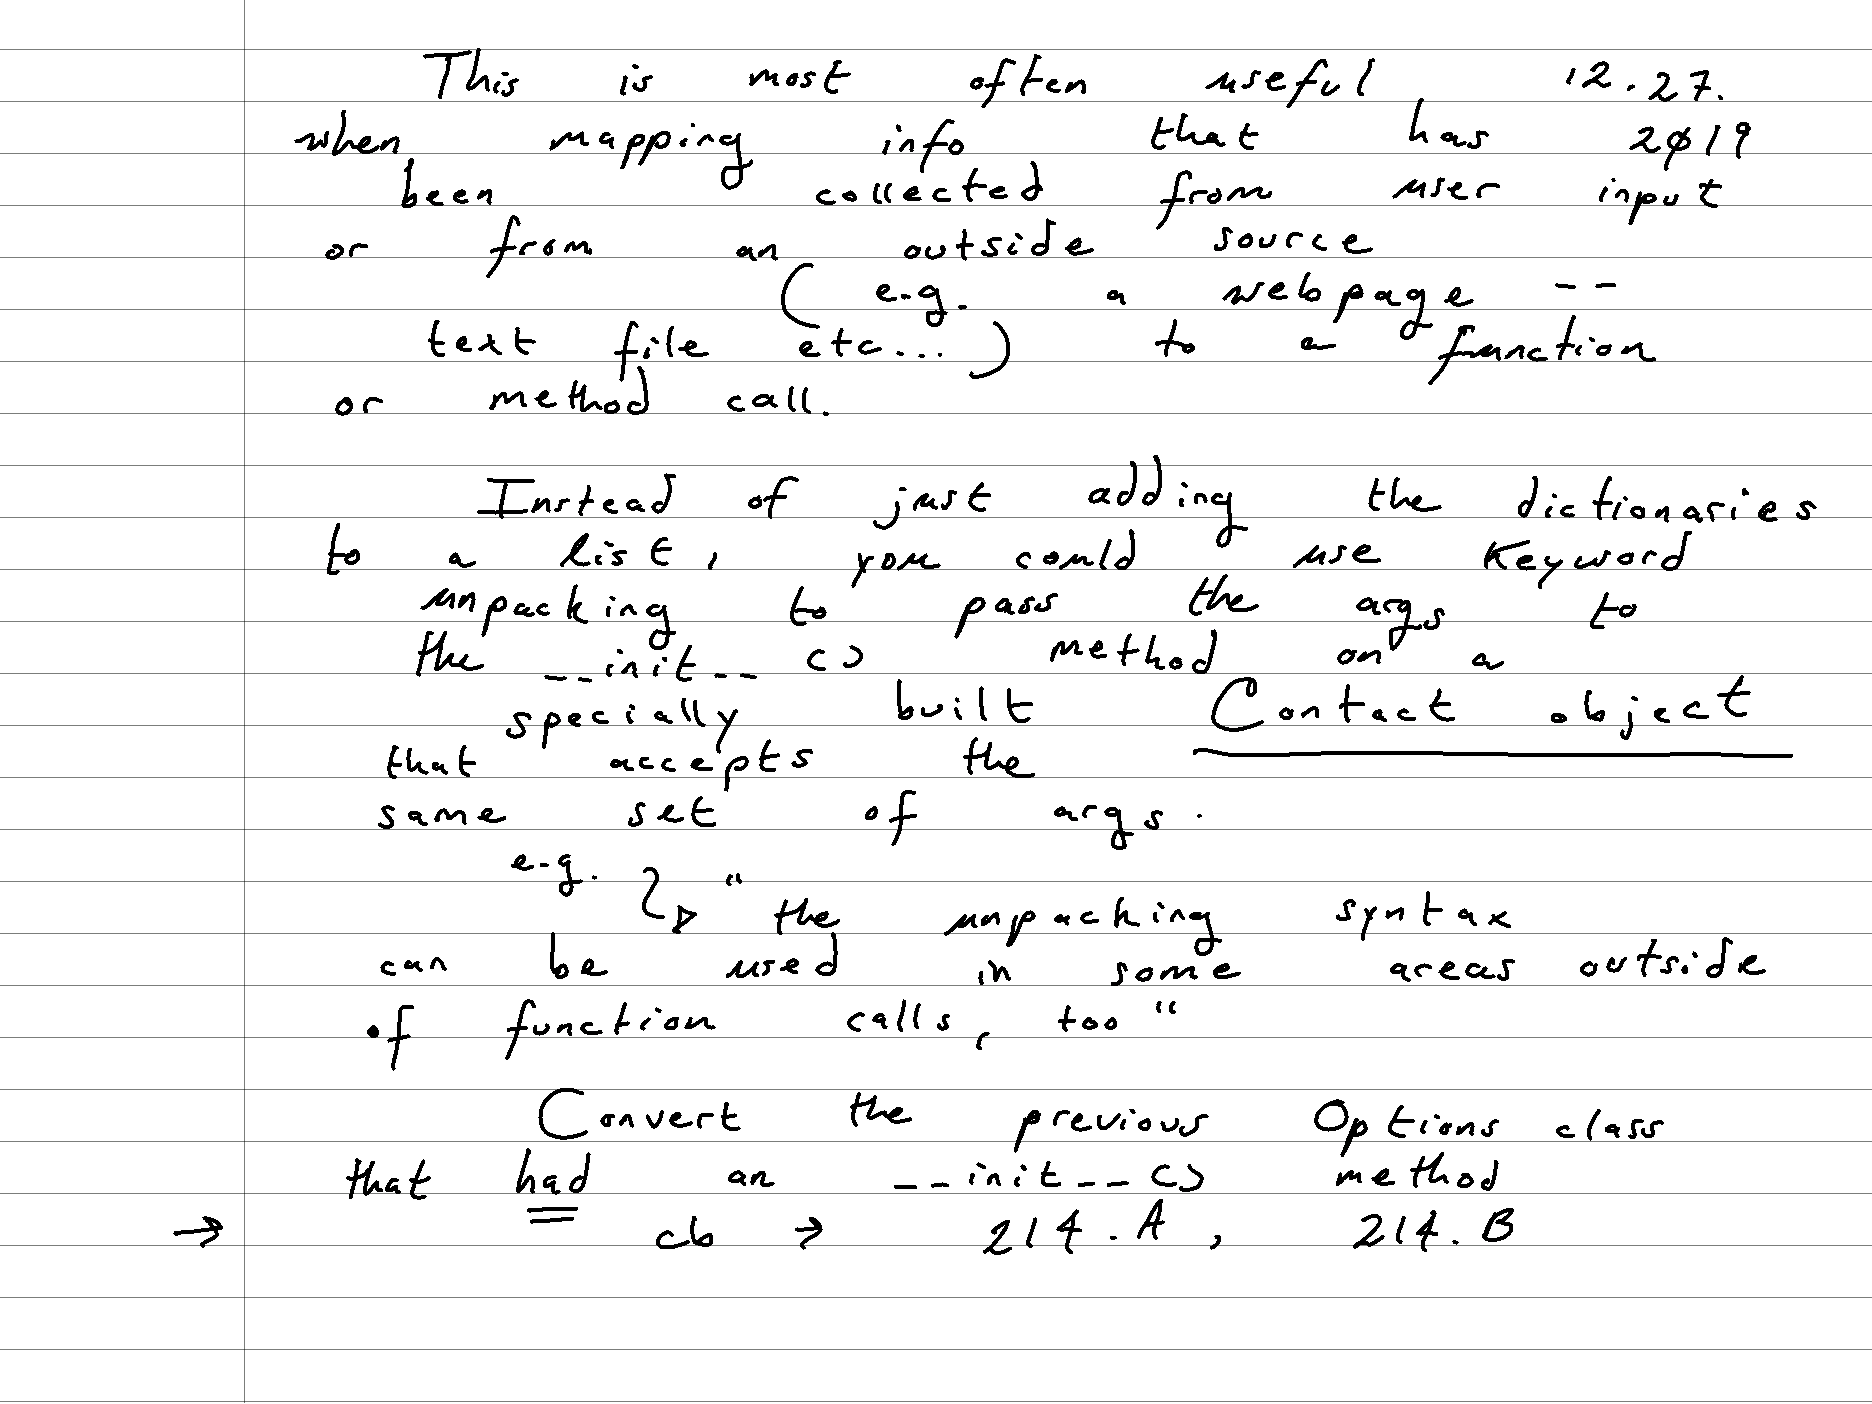 This is most often useful 12.27.
when mapping info that has 2019
been collected from user input
or from an outside source
(e.g. a webpage --
text file etc...) to a function
or method call.
Instead of just adding the dictionaries
to a list, you could use Keyword
unpacking to pass the args to
the __init__ () method on a
specially built Contact object
that accepts the
same set of args.
e.g. "the unpacking syntax
can be used in some areas outside
of function calls, too"
Convert the previous Options class
that had an __init__() method
→ cb → 214.A, 214.B